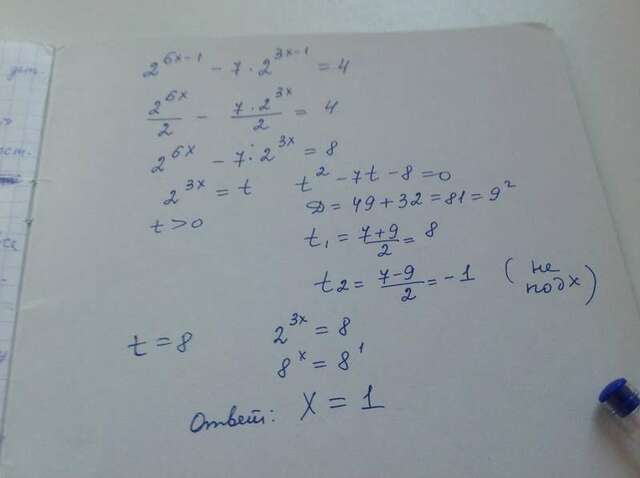 2^{6x-1} - 7 · 2^{3x-1} = 4
2^{6x}/2 - 7·2^{3x}/2 = 4
2^{6x} - 7·2^{3x} = 8
2^{3x} = t t² - 7t - 8 = 0
t > 0 D = 49 + 32 = 81 = 9²
t₁ = (7+9)/2 = 8
t2 = (7-9)/2 = -1 (не подх)
t = 8 2^{3x} = 8
8^x = 8^1
Ответ: x = 1